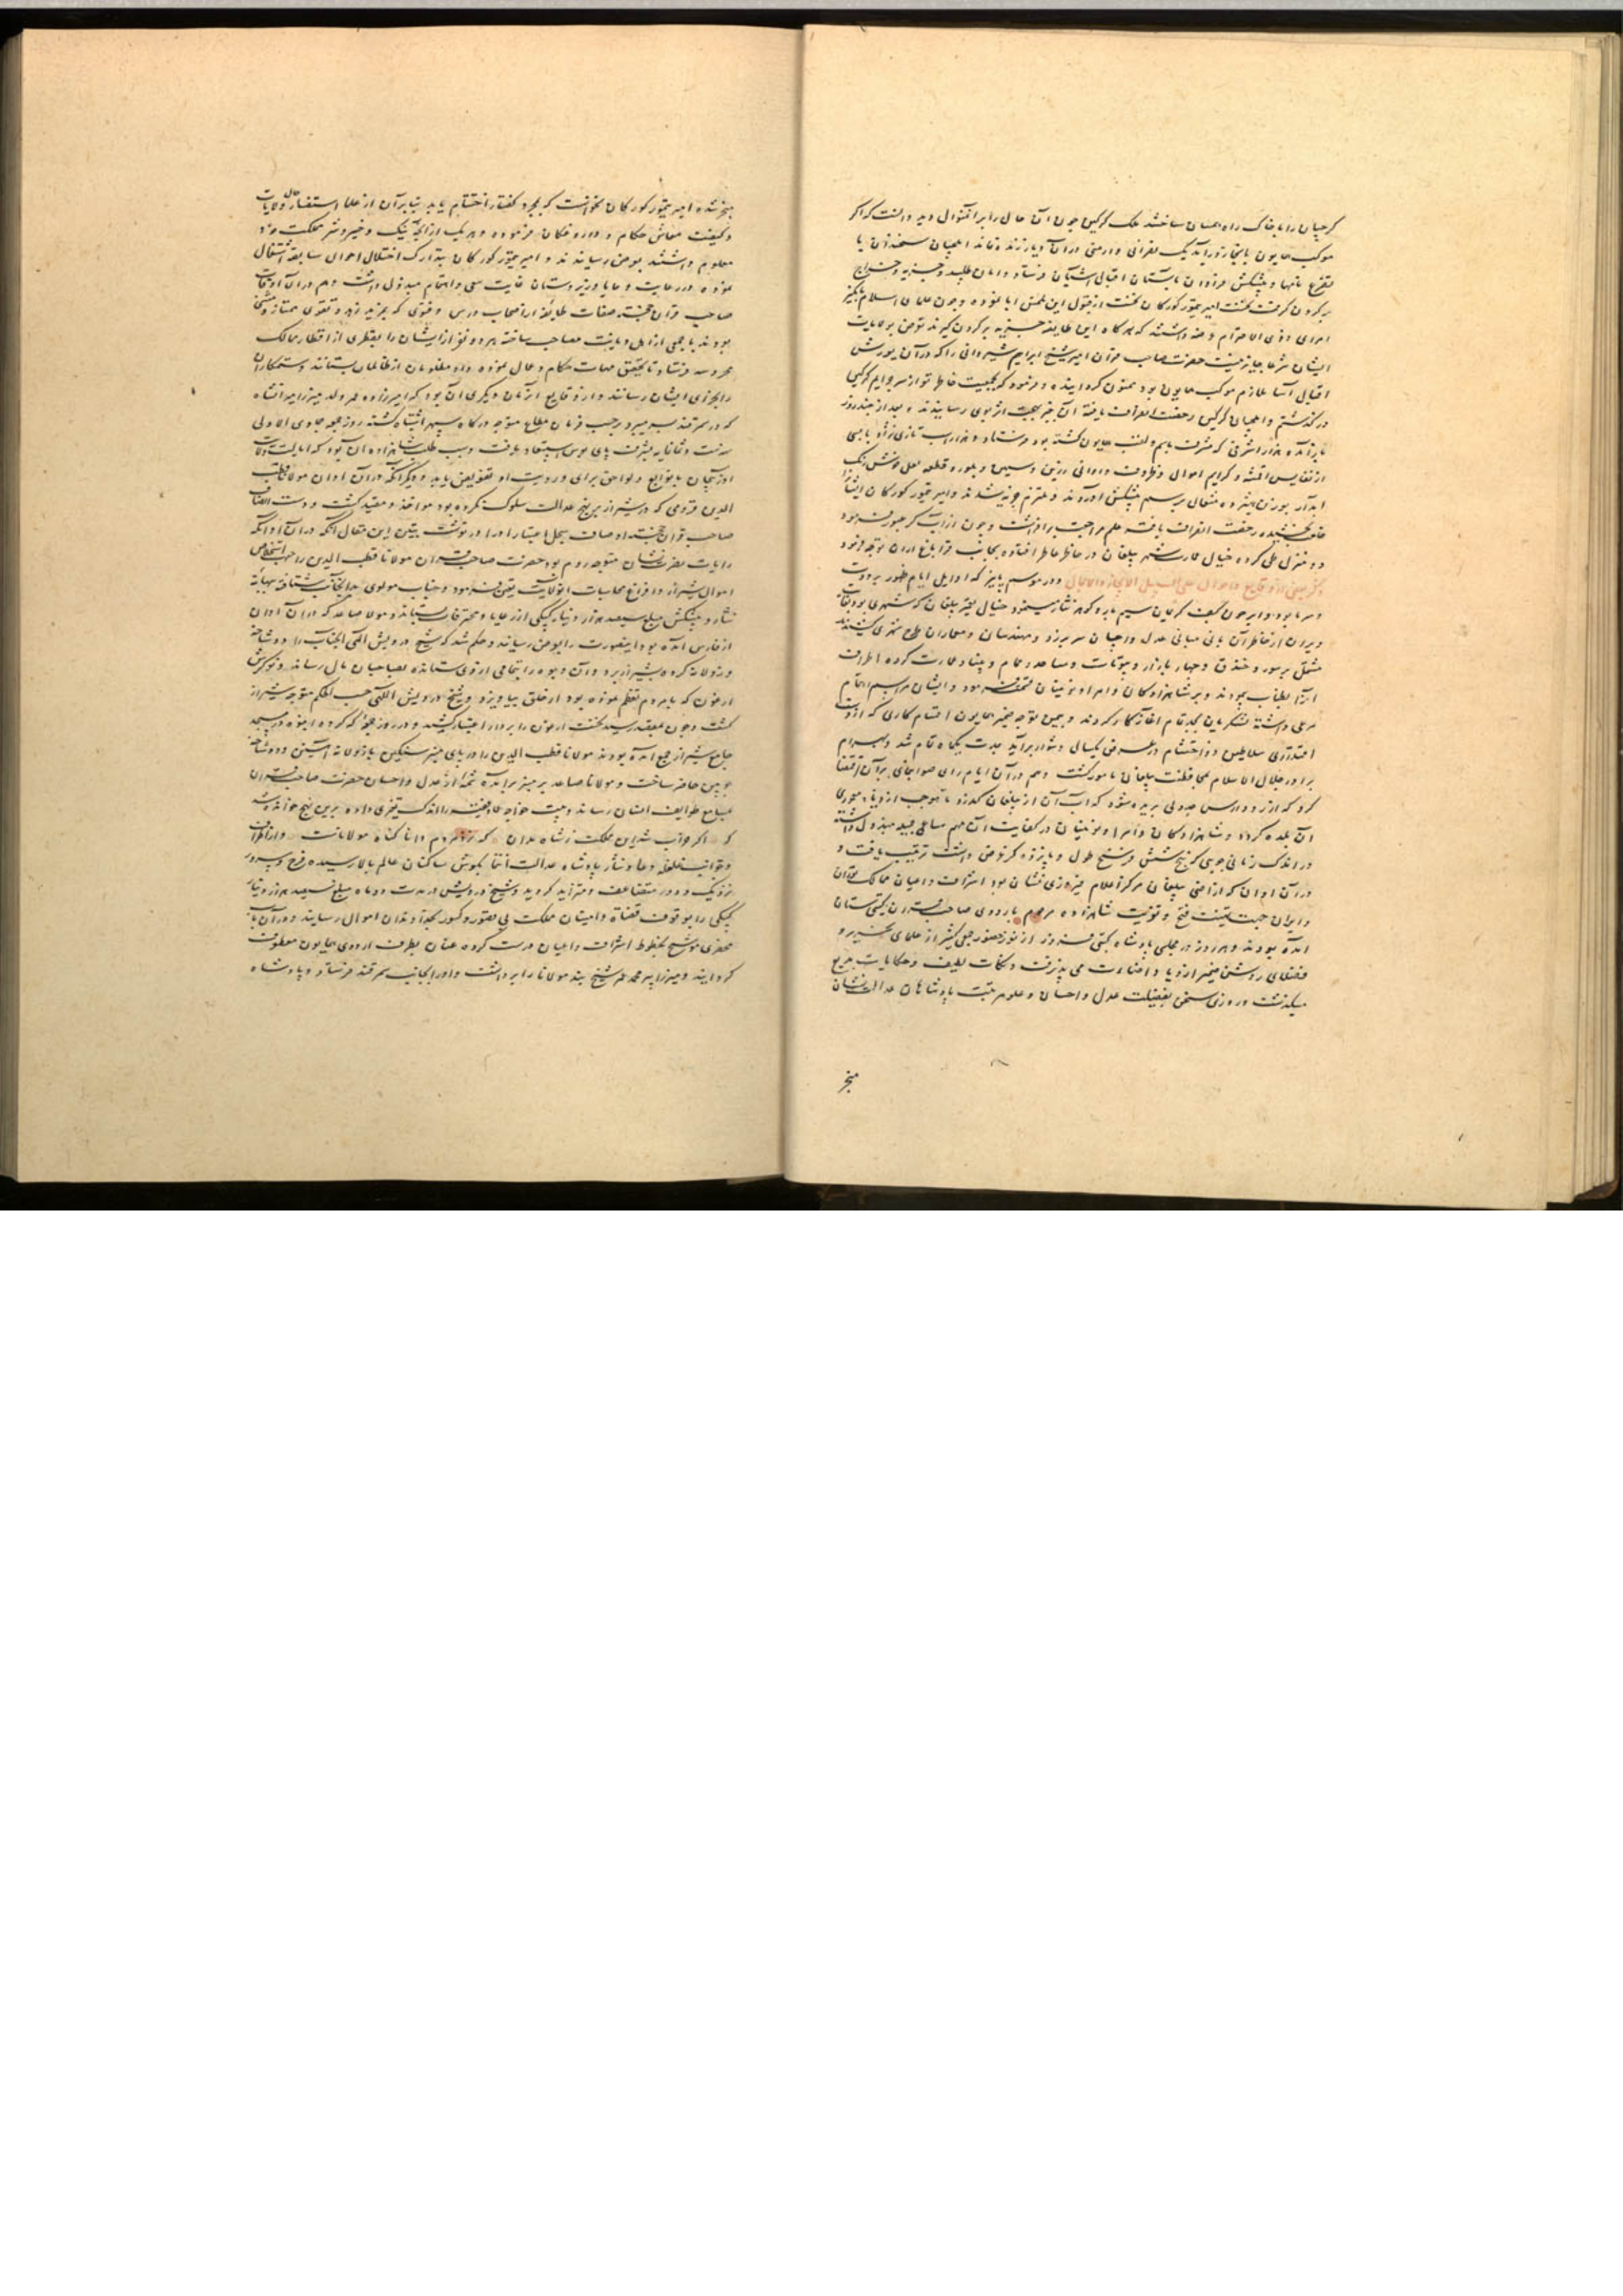 کرجیان را با خاک راه یکسان ساختند ملک کرکین چون آن حال را برین منوال دید دانست که اکر
موکب همایون بابخاز در آید یک نصرانی و ارمنی در آن دیار زنده نماند ایلچیان سخندان با
تضرع نامها و پیشکش فراوان بآستان اقبال آشیان فرستاد و امان طلبید و جزیه و خراج
بر کردن کرفت نخست امیر تیمور کورکان از قبول این ملتمس ابا نموده و چون علمای اسلام
امرای ذوی الاحترام عرضه داشتند که هر کاه این طایفه جزیه بر کردن کیرند تعرض بولایات
ایشان شرعا جایز نیست حضرت صاحب قران امیر شیخ ابراهیم شیروانی را که در آن یورش
اقبال آسا ملازم موکب همایون بود ممنون کردانیده و فرمود که بجهت خاطر تو از سر جرایم کرکین
در کذشتم و ایلچیان کرکین رخصت انصراف یافته آن خبر بهجت اثر بوی رسانیدند و بعد از چند روز
باز آمده هزار اشرفی که مشرف باسم و لقب همایون کشته بود فرستاد و هزار اسب تازی نژاد با بسی
از نفایس اقمشه و کرایم اموال و ظروف و اوانی زرین و سیمین و بلور و قطعه لعل خوش رنک
آبدار بوزن هیژده مثقال برسم پیشکش آوردند و ملتزم جزیه شدند و امیر تیمور کورکان ایشانرا
خلعت بخشیده رخصت انصراف یافته علم مراجعت برافراشت و چون از آب کر عبور فرمود
دو منزل طی کرده خیال عمارت شهر بیلقان در خاطر عاطر افتاده بجانب قراباغ اران توجه فرمود
ذکر بعضی از وقایع و احوال علی سبیل الایجاز والاجمال و در موسم پاییز که اوایل ایام ظهور برودت
و سرما بود و ابر چون کف کریمان سیم بار و کوهر نثار مینمود خیال تعمیر بیلقان که شهری بود بغایت
ویران از خاطر آن بانی مبانی عدل و احسان سر برزد و مهندسان و معماران طرح شهری کشیدند
مشتمل بر سور و خندق و چهار بازار و بیوتات و مساجد و حمام و بنیاد عمارت کرده اطراف
آنرا بطناب پیمودند و بر شاهزادکان و امرا و نوئینان قسمت فرمود و ایشان مراسم اهتمام
مرعی داشته لشکریان بجد تمام آغاز کار کردند و بیمن توجه ضمیر همایون اقسام کاری که از وفور
اقتدار سلاطین ذو احتشام در عرض یکسال دشوار برآید بمدت یکماه تمام شد و بهرام
برادر جلال الاسلام بمحافظت بیلقان مامور کشت و هم در آن ایام رای صوابنمای بر آن اقتضا
کرد که از رود ارس جدولی بریده شود که آب آن از بیلقان کذرد تا موجب ازدیاد معموری
آن بلده کردد و شاهزادکان و امرا و نوئینان در کفایت آن مهم مساعی جمیله مبذول داشته
در اندک زمانی جویی که پنج شش فرسنخ طول و پانزده کز عرض داشت ترتیب یافت و
در آن اوان که اراضی بیلقان مرکز اعلام فیروزی نشان بود اشراف و اعیان ممالک توران
و ایران جهت تهنیت فتح و تعزیت شاهزاده مرحوم باردوی صاحب قران کیتی ستان
آمده بودند و هر روز در مجلس پادشاه کیتی فروز از نور حضور جمعی کثیر از علمای نحریر و
فضلای روشن ضمیر ازدیاد اضاءت می پذیرفت و نکات لطیف و حکایات بدیع
میکذشت و روزی سخن بفضیلت عدل و احسان و علو مرتبت پادشاهان عدالت نشان
منجر
منجر شده امیر تیمور کورکان نخواست که بمجرد کفتار اختتام یابد بنابر آن از علما استفسار حال ولایات
و کیفیت معاش حکام و داروغکان فرموده و هر یک از آنچه نیک و خیر و شر مملکت خود
معلوم داشتند بعرض رسانیدند و امیر تیمور کورکان بتدارک اختلال احوال سابقه اشتغال
نموده در رعایت رعایا و زیردستان غایت سعی و اهتمام مبذول داشت و هم در آن اوقات
صاحب قران خجسته صفات طایفه از اصحاب درس و فتوی که بمزید زهد و تقوی ممتاز و مستثنی
بودند با جمعی از اهل دیانت مصاحب ساخته هر دو نفر از ایشان را بقطری از اقطار ممالک
محروسه فرستاد تا بتحقیق مهمات حکام و عمال نموده داد مظلومان از ظالمان بستانند و ستمکاران
را بجزای ایشان رسانند و از وقایع آنزمان دیکری آن بود که امیرزاده عمر ولد میرزا میرانشاه
که در سمرقند بسر میبرد بحسب فرمان مطاع متوجه درکاه سپهر اشتباه کشته روز جمعه جمادی الاولی
سنه ست و ثمانمایه بشرف پای بوس استسعاد یافت و سبب طلب شاهزاده آن بود که ایالت ولایت
آذربیجان با توابع و لواحق برای و رویت او تفویض یابد و دیکر آنکه در آن اوان مولانا قطب
الدین قرومی که در شیراز بر نهج عدالت سلوک نکرده بود مواخذ و مقید کشت و دست انصاف
صاحب قران خجسته اوصاف سجل اعتبار او را در نوشت بتبیین این مقال آنکه در آن اوان که
رایات نصرت نشان متوجه روم بود حضرت صاحب قران مولانا قطب الدین را جهت استخلاص
اموال شیراز و افراغ محاسبات آنولایت تعیین فرمود و جناب مولوی بدانجانب شتافته ببهانه
نثار و پیشکش مبلغ سیصد هزار دینار کپکی از رعایا و محترفات بستاند و مولانا صاعد که در آن اوان
از فارس آمده بود اینصورت را بعرض رسانید و حکم شد که شیخ درویش اللهی آنجناب را دو شاخه
و زولانه کرده بشیراز برد و آن وجوه را بتمامی از وی ستانده بصاحبان مال رساند و نوکرش
ارغون که با مردم تعظم نموده بود از حلق بیاویزد و شیخ درویش اللهی حسب الحکم متوجه شیراز
کشت و چون بمقصد رسید نخست ارغون را بر دار اعتبار کشید و در روز جمعه که کروه انبوه در مسجد
جامع شیراز جمع آمده بودند مولانا قطب الدین را در پای منبر سنکین با زولانه آهنین و دو شاخه
چوبین حاضر ساخت و مولانا صاعد بر منبر برآمده شمه از عدل و احسان حضرت صاحب قران
بمسامع طوایف انسان رساند و بیت خواجه عماد فقیه را اندک تغیری داده برین نهج خوانده شد
که اکر خراب شد این مملکت ز شاه مدان که نزد مردم دانا کناه مولاناست و از اطراف
و جوانب غلغله دعا و ثنای پادشاه عدالت انتما بکوش ساکنان عالم بالا رسیده فرح و سرور
نزدیک و دور متضاعف و متزاید کردید و شیخ درویش در مدت دو ماه مبلغ سیصد هزار دینار
کپکی را بوقوف قضاة و امینان مملکت بی قصور و کسور بخداوندان اموال رسانید و در آن باب
محضری موشح بخطوط اشراف و اعیان درست کرده عنان بطرف اردوی همایون معطوف
کردانید و میرزا پیر محمد عمر شیخ بند مولانا را برداشت و او را بجانب سمرقند فرستاد و پادشاه